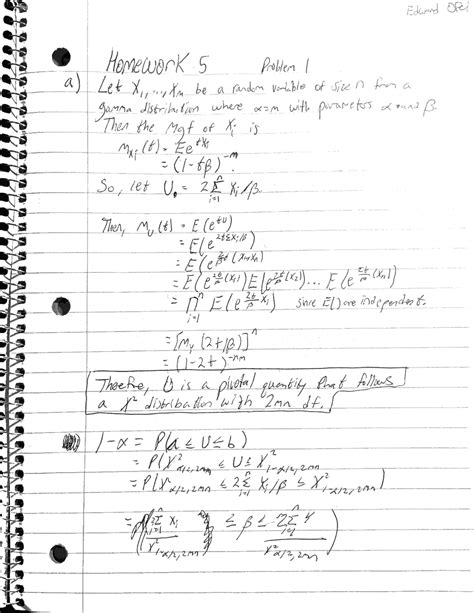 Edward
Homework 5 Problem 1
a) Let X₁, ..., Xₙ be a random variable of size n from a
gamma distribution where α=m with parameters α and β.
Then the Mgf of Xᵢ is
m_{Xᵢ}(t) = Ee^{tXᵢ}
= (1-tβ)^{-m}.
So, let U = 2 Σ_{i=1}^{n} Xᵢ/β.
Then, M_U(t) = E(e^{tU})
= E(e^{2tΣXᵢ/β})
= E(e^{2t/β (X₁+Xₙ)})
= E(e^{2t/β (X₁)}) E(e^{2t/β (X₂)}) ... E(e^{2t/β (Xₙ)})
= ∏_{i=1}^{n} E(e^{2t/β Xᵢ}) since E() are independent.
= [M_Y (2t/β)]^n
= (1-2t)^{-nm}
Therefore, U is a pivotal quantity that follows
a χ² distribution with 2mn df.
1-α = P(a ≤ U ≤ b)
= P(χ²_{α/2, 2mn} ≤ U ≤ χ²_{1-α/2, 2mn})
= P(χ²_{α/2, 2mn} ≤ 2 Σ_{i=1}^{n} Xᵢ/β ≤ χ²_{1-α/2, 2mn})
= P( 2Σ_{i=1}^{n} Xᵢ / χ²_{1-α/2, 2mn} ≤ β ≤ 2Σ_{i=1}^{n} Y / χ²_{α/2, 2mn} )